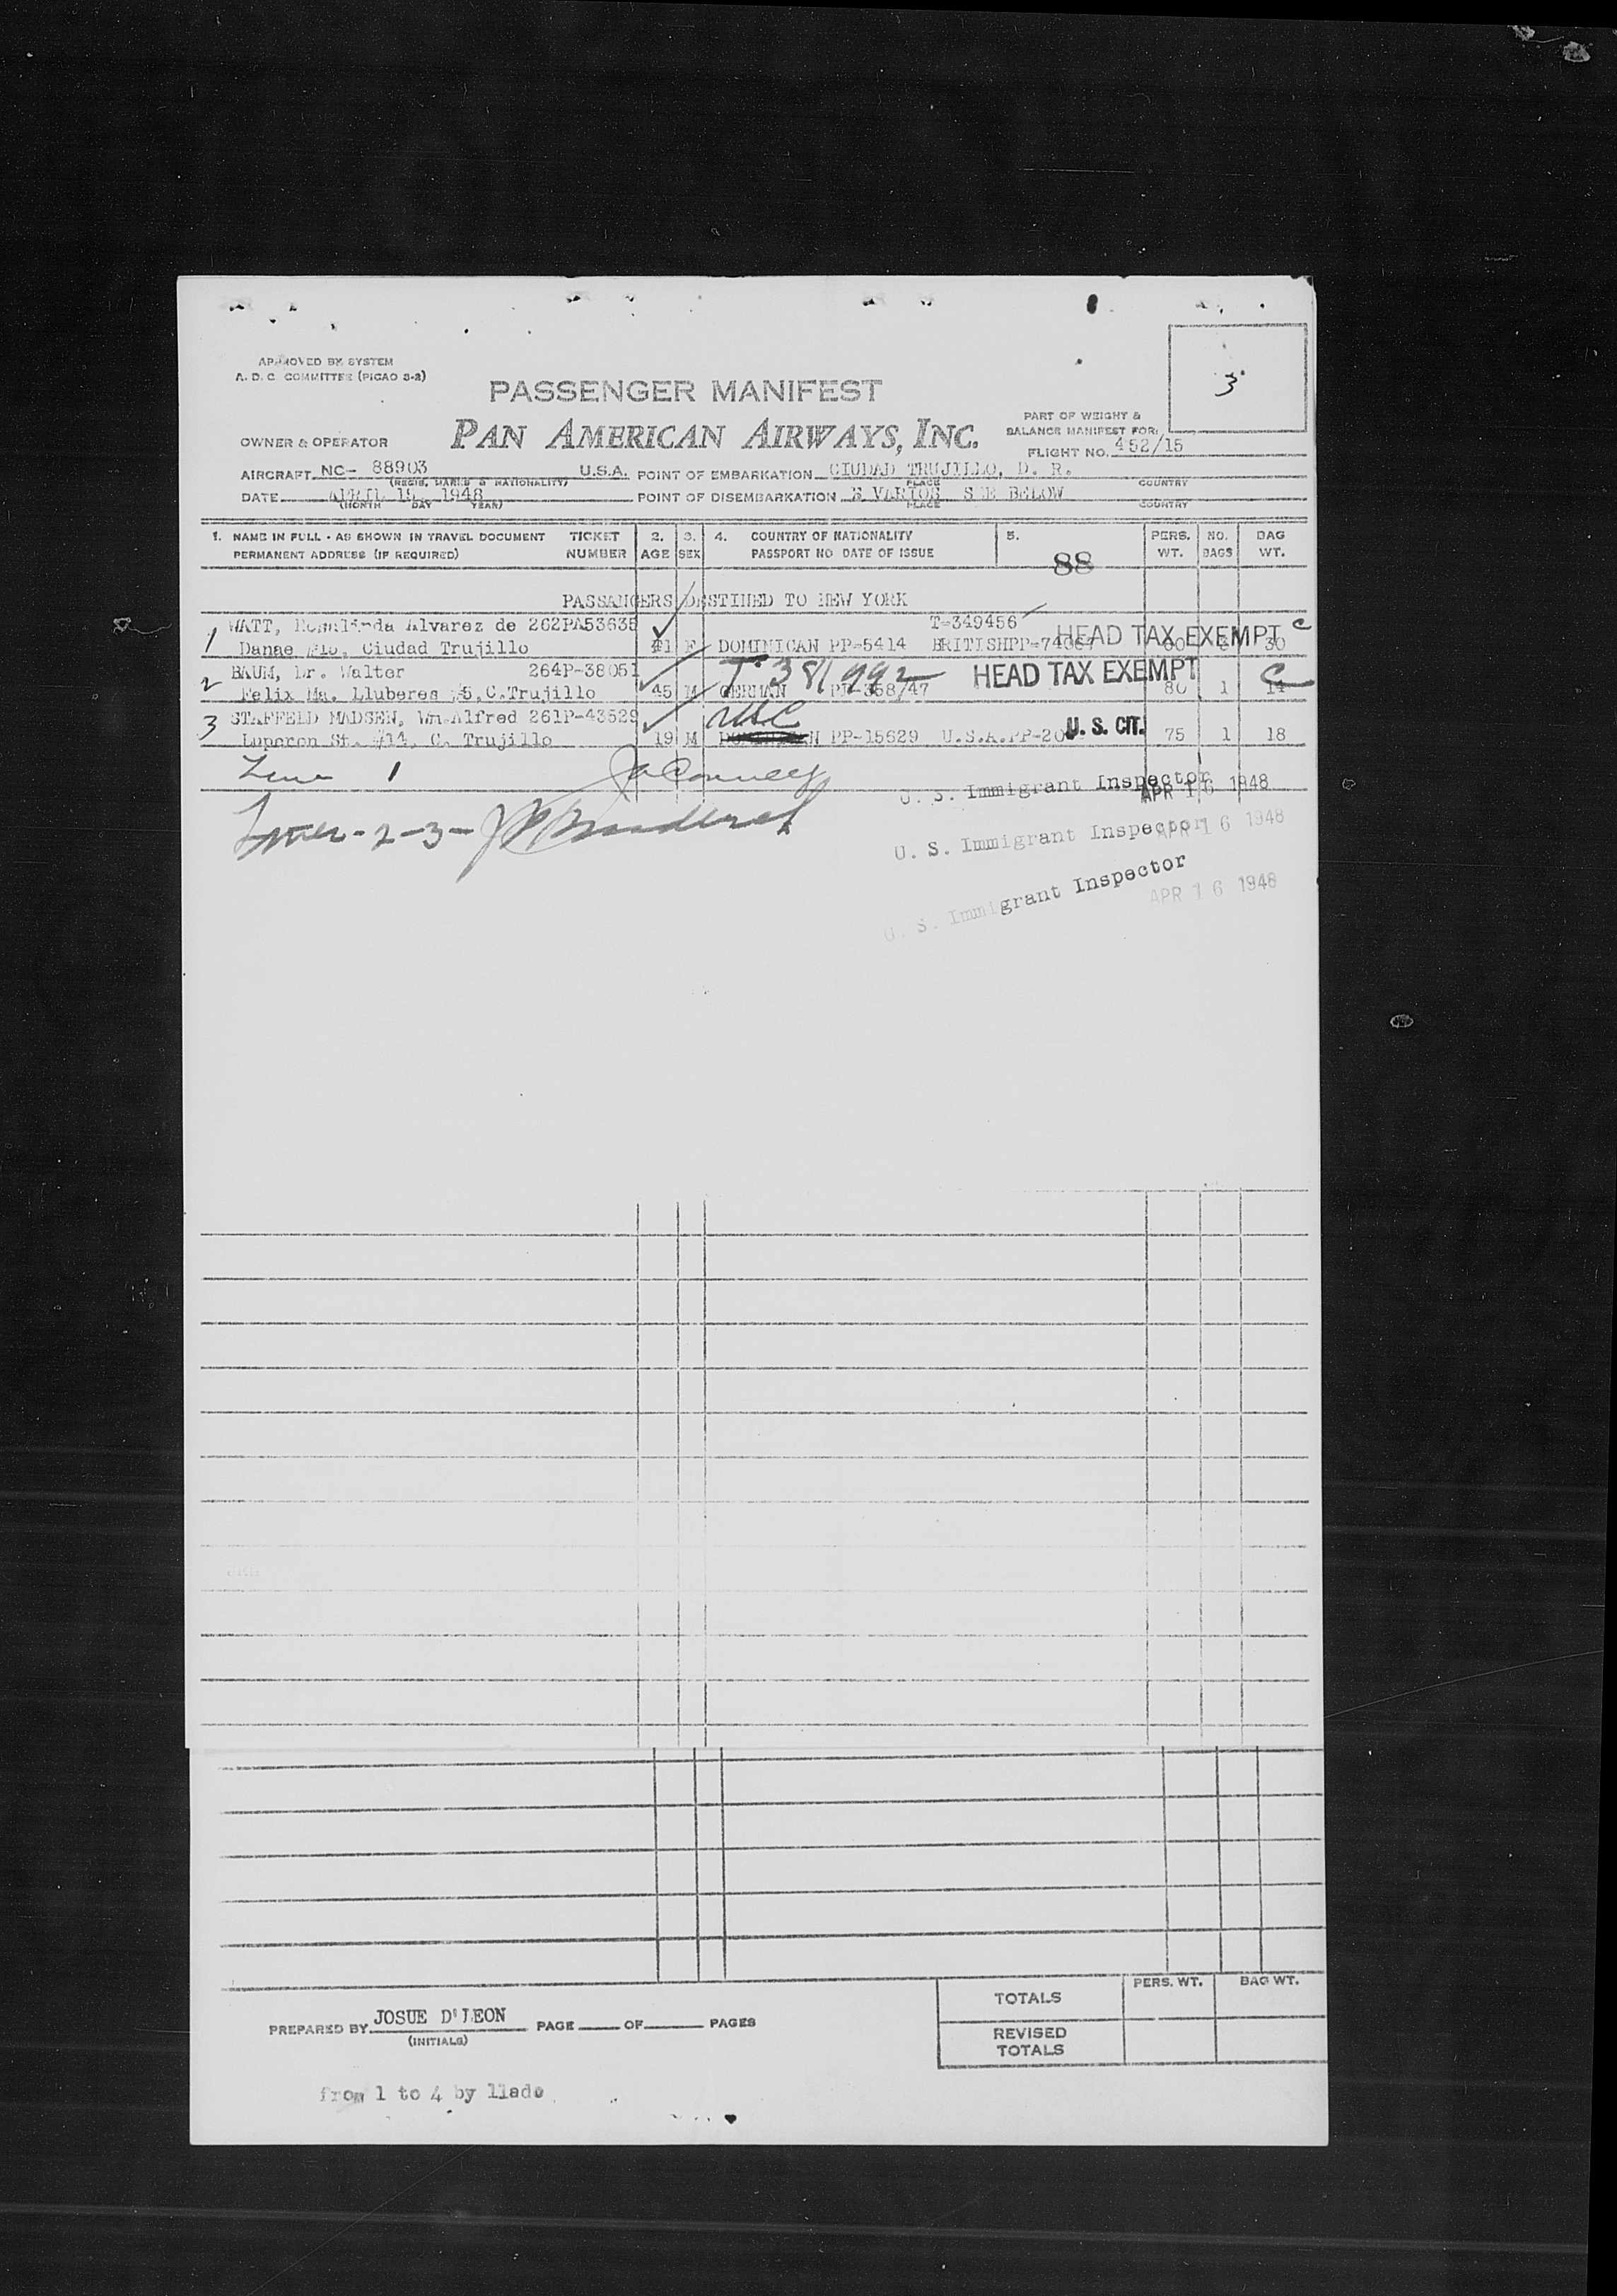 APPROVED BY SYSTEM
A. D. C. COMMITTEE (PICAO 3-2)
3
PASSENGER MANIFEST
PART OF WEIGHT &
BALANCE MANIFEST FOR:
OWNER & OPERATOR PAN AMERICAN AIRWAYS, INC.
FLIGHT NO. 452/15
AIRCRAFT NC- 88903 U.S.A. POINT OF EMBARKATION CIUDAD TRUJILLO, D. R.
(REGIS. MARKS & NATIONALITY) PLACE COUNTRY
DATE APRIL 15, 1948 POINT OF DISEMBARKATION VARIOS SEE BELOW
(MONTH DAY YEAR) PLACE COUNTRY
1. NAME IN FULL - AS SHOWN IN TRAVEL DOCUMENT TICKET 2. 3. 4. COUNTRY OF NATIONALITY 5. PERS. NO. BAG
PERMANENT ADDRESS (IF REQUIRED) NUMBER AGE SEX PASSPORT NO DATE OF ISSUE WT. BAGS WT.
88
PASSANGERS DESTINED TO NEW YORK
WATT, Rosalinda Alvarez de 262PA53635 T-349456
1 Danae Ciudad Trujillo 41 F DOMINICAN PP-5414 BRITISHPP- HEAD TAX EXEMPT C 30
BAUM, Dr. Walter 264P-38051 T-381992 HEAD TAX EXEMPT C
2 Felix Ma. Lluberes #5, C.Trujillo 45 M GERMAN 358/47 80 1 14
3 STAFFELD MADSEN, Wm Alfred 261P-43529 USC
Luperon St. #14, C. Trujillo 19 M DOMINICAN PP-15629 U.S.A.PP-20 U. S. CIT. 75 1 18
Line 1
U. S. Immigrant Inspector APR 16 1948
Lines - 2 - 3 -
U. S. Immigrant Inspector APR 16 1948
U. S. Immigrant Inspector APR 16 1948
PERS. WT. BAG WT.
TOTALS
PREPARED BY JOSUE D'LEON PAGE OF PAGES
(INITIALS)
REVISED
TOTALS
from 1 to 4 by llado